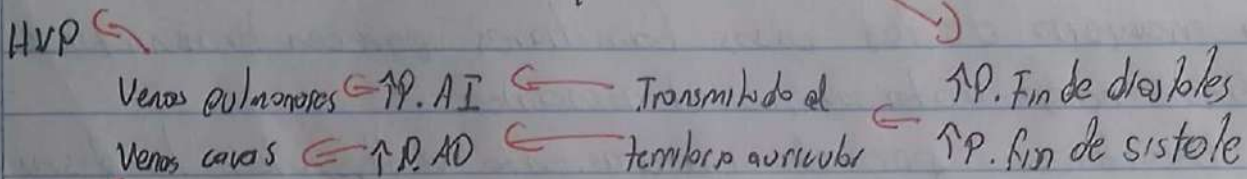 HVP
Venas pulmonares ← ↑P. AI ← Transmitido al ↑P. Fin de diástoles
Venas cavas ← ↑P. AD ← territorio auricular ← ↑P. fin de sistole